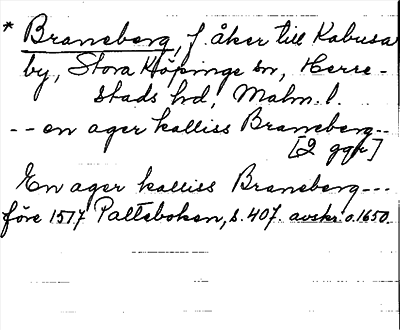 * Braneberg, f. åker till Kabusa
by, Stora Köpinge sn, Herre-
stads hd, Malm. l.
-- en ager kalliss Braneberg--
[2 ggr]
En ager kaliss Braneberg---
före 1517 Palteboken, s. 407. avskr. o. 1650.